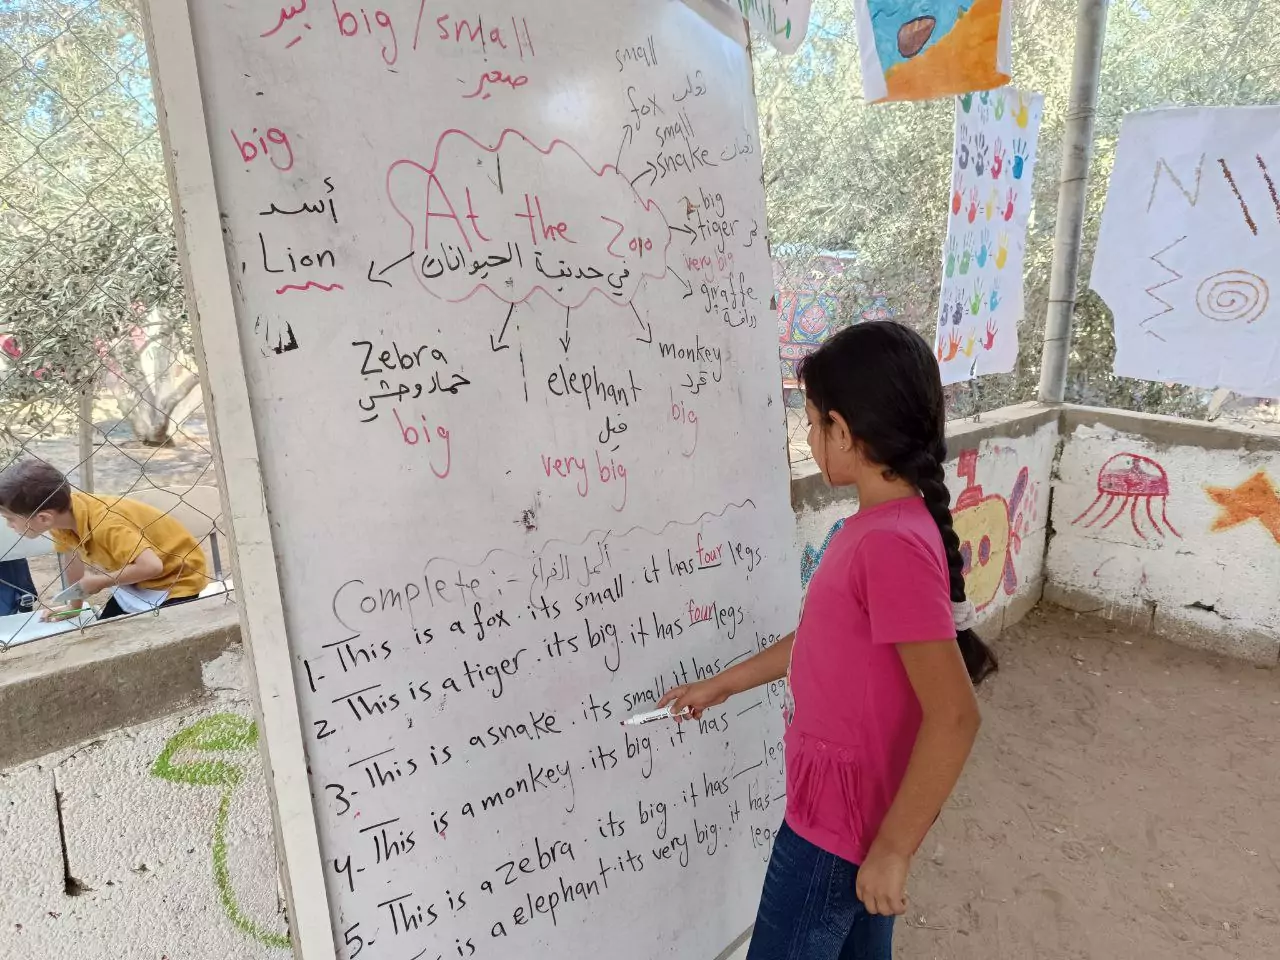 كبير big / small
صغير
small
fox ثعلب
small
snake ثعبان
big
tiger نمر
very big
giraffe
زرافة
big
أسد
Lion
At the Zoo
في حديقة الحيوانات
Zebra
حمار وحشي
big
elephant
فيل
very big
monkey
قرد
big
Complete :- أكمل الفراغ
1- This is a fox. its small. it has four legs.
2- This is a tiger. its big. it has four legs.
3- This is a snake. its small it has — legs
4- This is a monkey. its big. it has — leg
5- This is a zebra. its big. it has — leg
is a elephant. its very big. it has —
legs